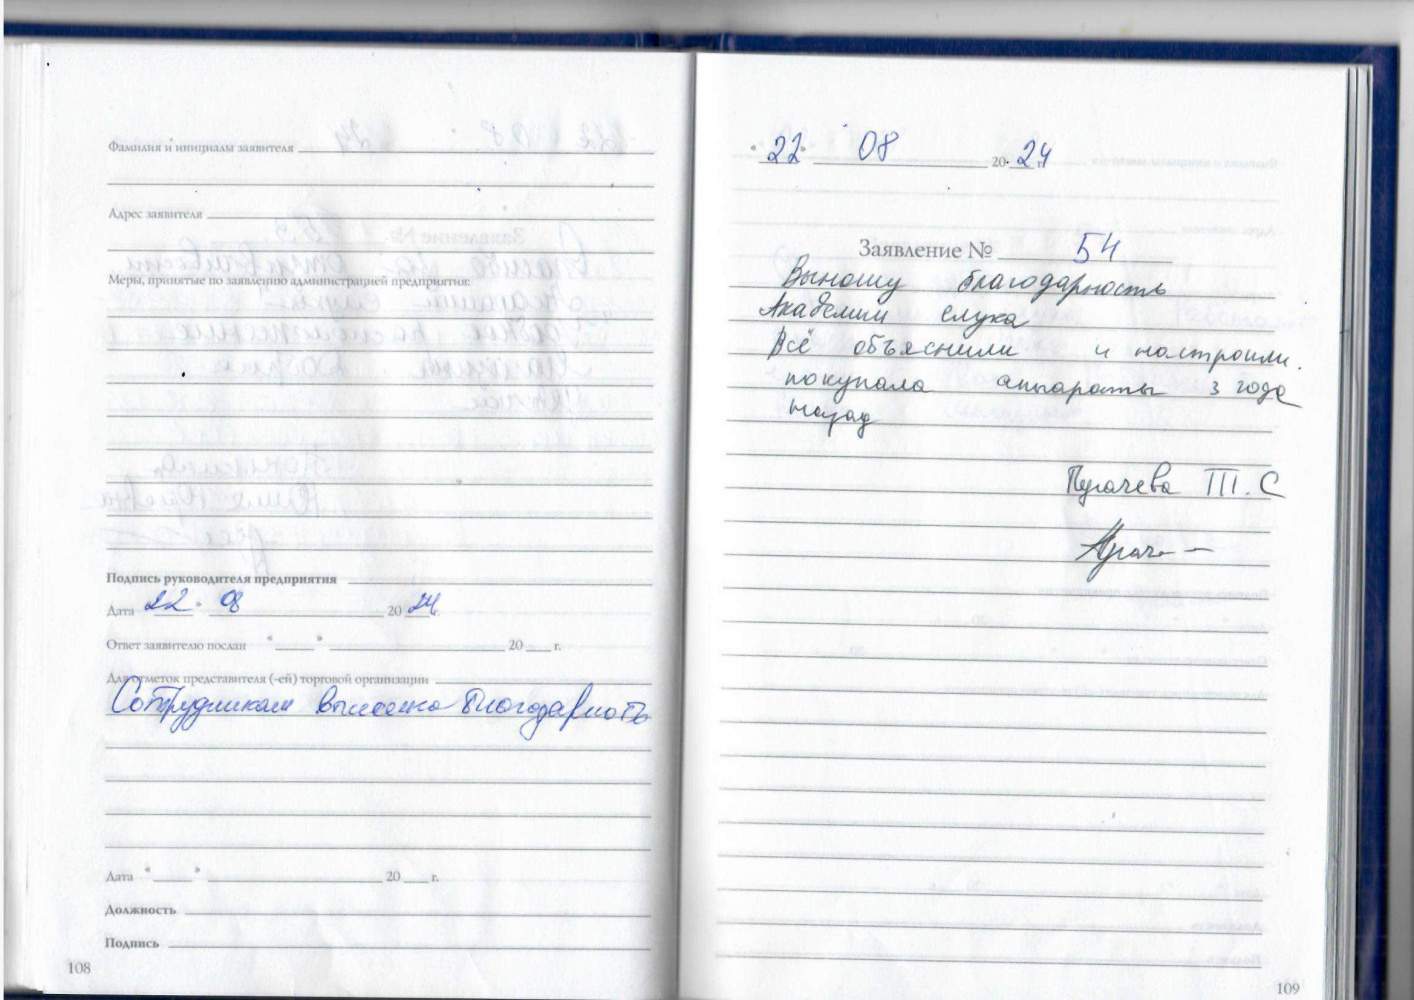 Фамилия и инициалы заявителя
Адрес заявителя
Меры, принятые по заявлению администрацией предприятия:
Подпись руководителя предприятия
Дата 22 " 08 20 24 г.
Ответ заявителю послан " " 20 г.
Для отметок представителя (-ей) торговой организации
Сотрудникам вынесена благодарность
Дата " " 20 г.
Должность
Подпись
108
" 22 " 08 20 24 г.
Заявление № 54
Выношу благодарность
Академии слуха
Всё объяснили и настроили.
покупала аппараты 3 года
назад
Пугачева Т. С
109